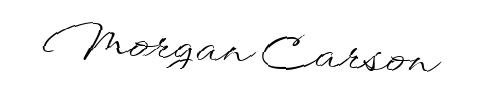 Morgan Carson